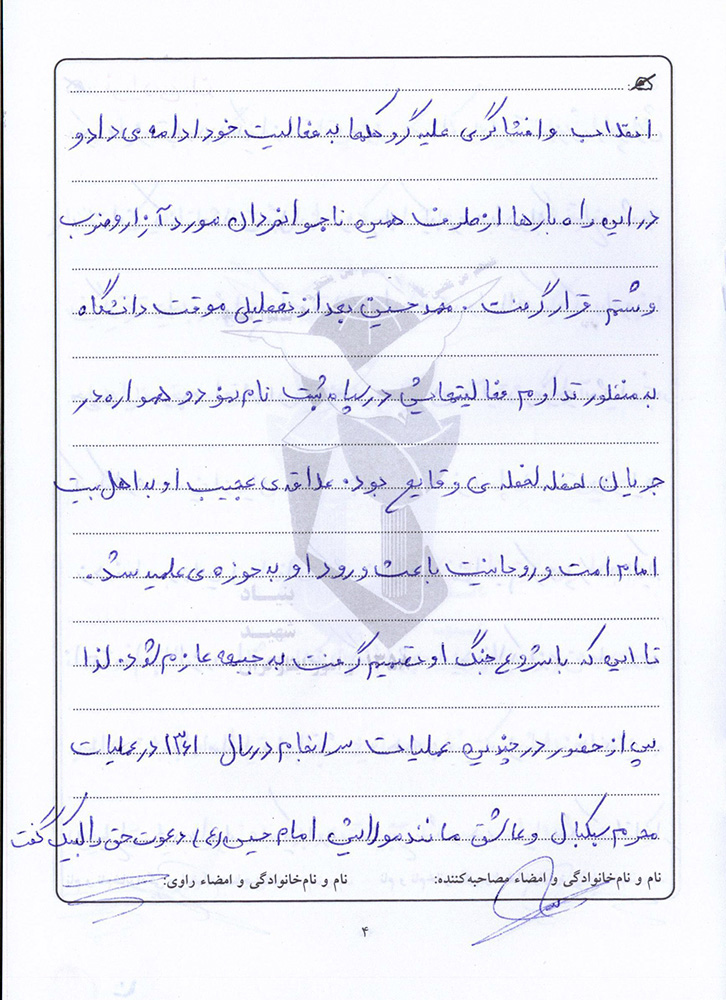 انقلاب و افشاگری علیه گروهکها به فعالیت خود ادامه می داد و
در این راه بارها از طرف همین ناجوانمردان مورد آزار و ضرب
و شتم قرار گرفت. محمد حسین بعد از تعطیلی موقت دانشگاه
به منظور تداوم فعالیتهایش در سپاه ثبت نام نمود و همواره در
جریان لحظه لحظه ی وقایع بود. علاقه ی عجیب او به اهل بیت
امام امت و روحانیت باعث ورود او به حوزه ی علمیه شد.
تا این که با شروع جنگ او تصمیم گرفت به جبهه عازم شود. لذا
پس از حضور در چندین عملیات سرانجام در سال ۱۳۶۱ در عملیات
محرم سبکبال و عاشق مانند مولایش امام حسین (ع) دعوت حق را لبیک گفت
نام و نام‌خانوادگی و امضاء مصاحبه‌کننده: نام و نام‌خانوادگی و امضاء راوی:
۴
بنیاد
شهید